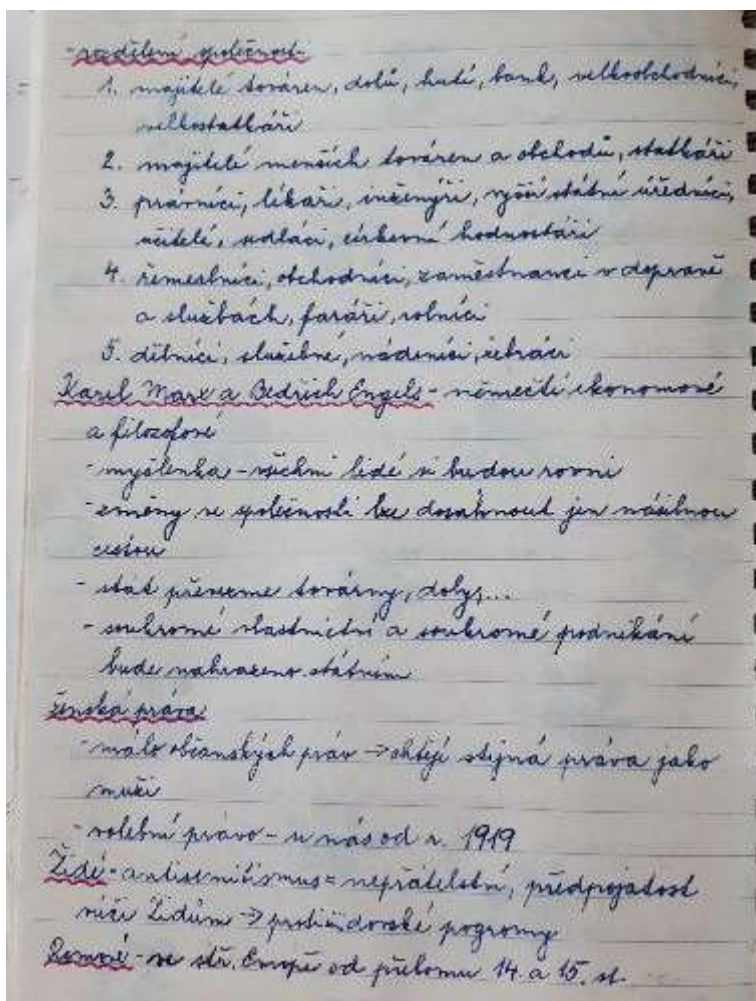 - rozdělení společnosti
1. majitelé továren, dolů, hutí, bank, velkoobchodníci,
velkostatkáři
2. majitelé menších továren a obchodů, statkáři
3. právníci, lékaři, inženýři, vyšší státní úředníci,
učitelé, sedláci, církevní hodnostáři
4. řemeslníci, obchodníci, zaměstnanci v dopravě
a službách, faráři, rolníci
5. dělníci, služebné, nádeníci, žebráci
Karel Marx a Bedřich Engels - němečtí ekonomové
a filozofové
- myšlenka - všichni lidé si budou rovni
- změny ve společnosti lze dosáhnout jen násilnou
cestou
- stát převezme továrny, doly,...
- soukromé vlastnictví a soukromé podnikání
bude nahrazeno státním
ženská práva
- málo občanských práv → chtějí stejná práva jako
muži
- volební právo - u nás od r. 1919
Židé - antisemitismus = nepřátelství, předpojatost
vůči Židům → protižidovské pogromy
Romové - ve stř. Evropě od přelomu 14. a 15. st.